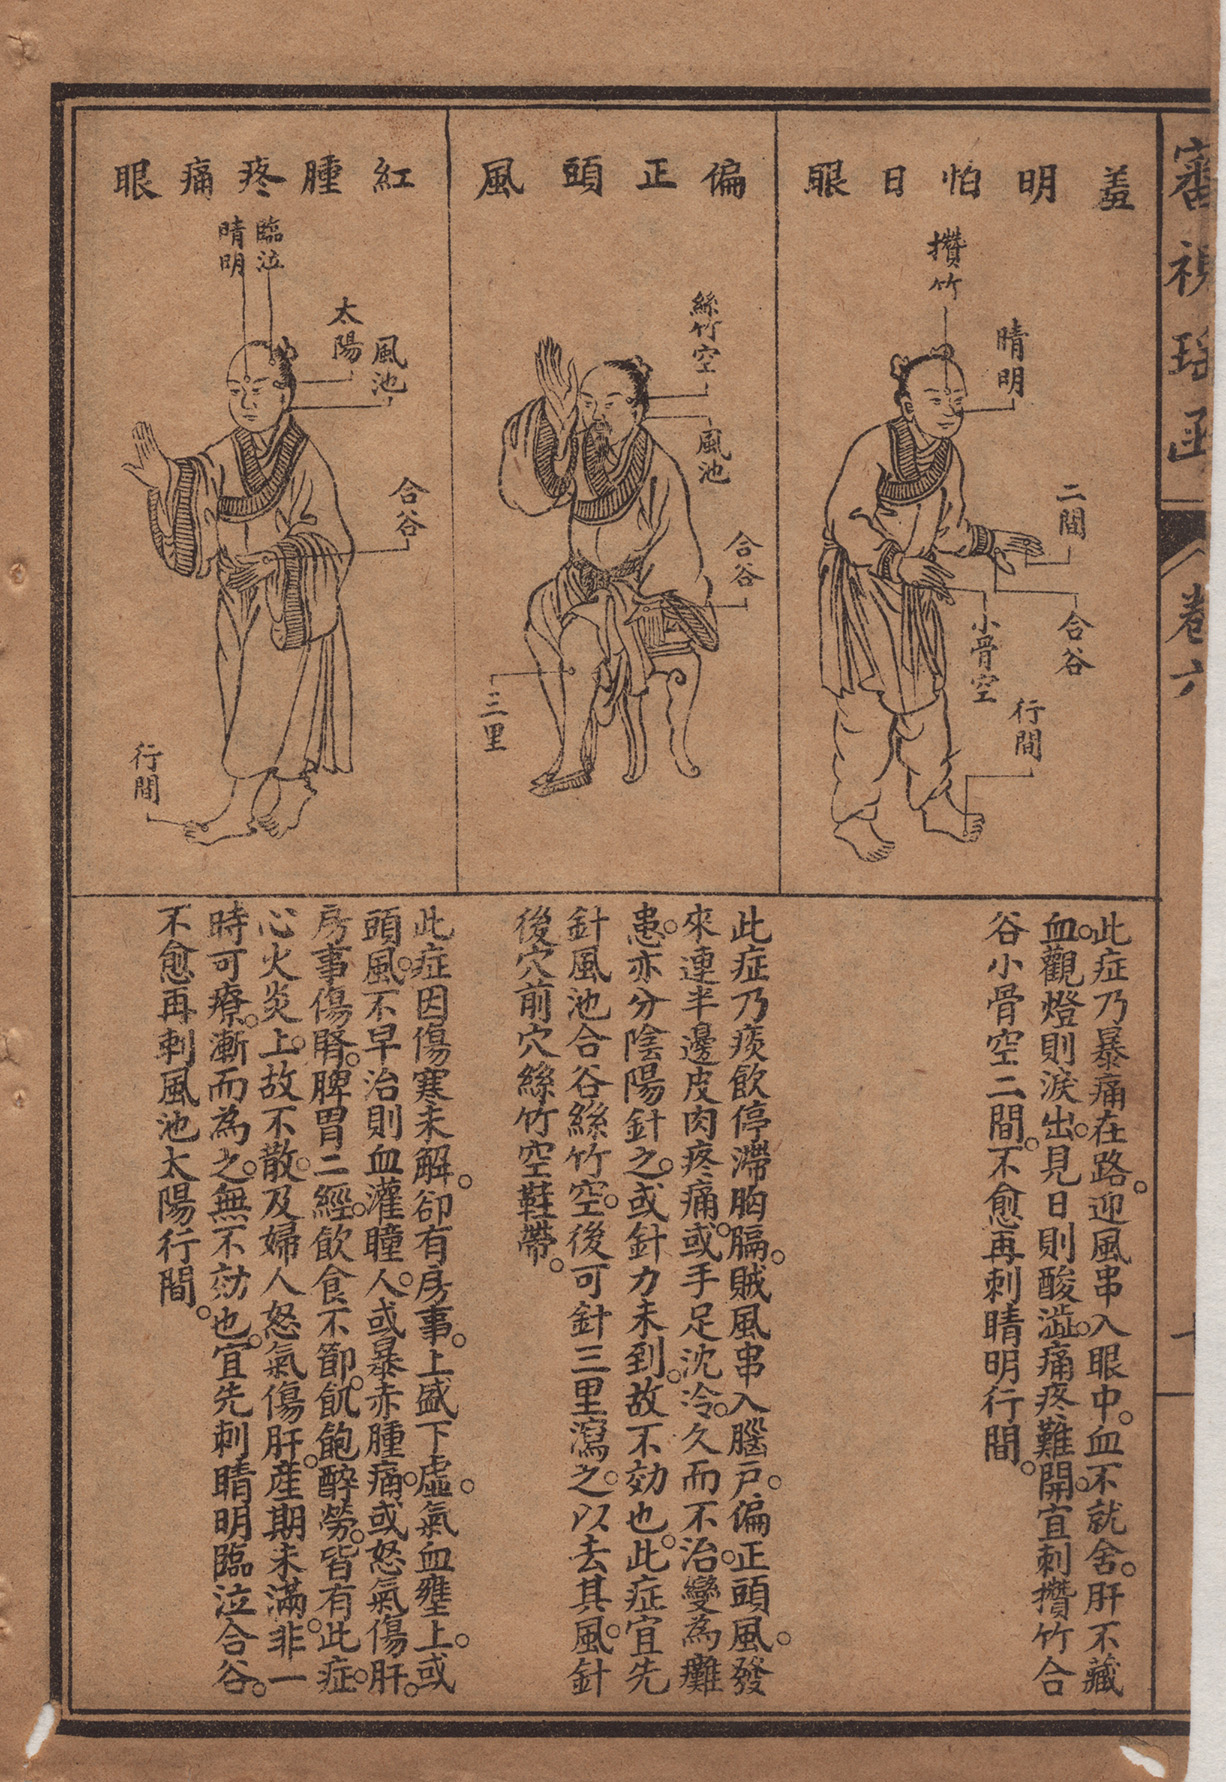 審視瑤函
卷六
羞明怕日眼
攢竹
晴明
二間
合谷
小骨空
行間
此症乃暴痛在路。迎風串入眼中。血不就舍。肝不藏
血。觀燈則淚出。見日則酸澁。痛疼難開。宜刺攢竹合
谷小骨空二間。不愈再刺睛明行間。
偏正頭風
絲竹空
風池
合谷
三里
此症乃痰飲停滯胸膈。賊風串入腦戶。偏正頭風。發
來連半邊皮肉疼痛。或手足沈冷。久而不治。變為癱
患。亦分陰陽針之。或針力未到。故不効也。此症宜先
針風池合谷絲竹空。後可針三里瀉之。以去其風。針
後穴前穴絲竹空鞋帶。
紅腫疼痛眼
臨泣
睛明
太陽
風池
合谷
行間
此症因傷寒未解。卻有房事。上盛下虛。氣血壅上。或
頭風。不早治則血灌瞳人。或暴赤腫痛。或怒氣傷肝。
房事傷腎。脾胃二經。飲食不節。飢飽醉勞。皆有此症。
心火炎上。故不散。及婦人怒氣傷肝。產期未滿。非一
時可療。漸而為之。無不効也。宜先刺睛明臨泣合谷。
不愈再刺風池太陽行間。